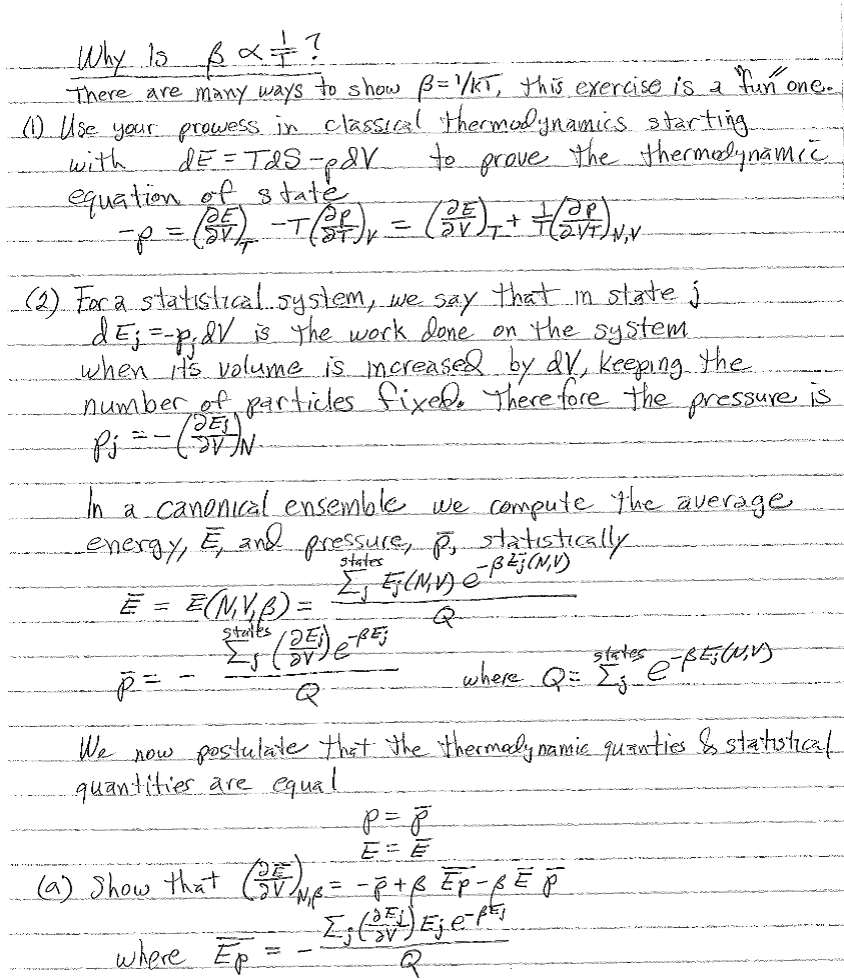 Why Is β ∝ 1/T ?
There are many ways to show β=1/kT, this exercise is a "fun" one.
(1) Use your prowess in classical thermodynamics starting
with dE = TdS - pdV to prove the thermodynamic
equation of state
-p = (∂E/∂V)_T - T(∂p/∂T)_V = (∂E/∂V)_T + 1/T(∂p/∂1/T)_N,V
(2) For a statistical system, we say that in state j
dEj = -pjdV is the work done on the system
when it's volume is increased by dV, keeping the
number of particles fixed. Therefore the pressure is
pj = -(∂Ej/∂V)_N
In a canonical ensemble we compute the average
energy, Ē, and pressure, p̄, statistically
Ē = Ē(N,V,β) = Σ_j^states Ej(N,V) e^-βEj(N,V) / Q
p̄ = - Σ_j^states (∂Ej/∂V) e^-βEj / Q where Q = Σ_j^states e^-βEj(N,V)
We now postulate that the thermodynamic quanties & statistical
quantities are equal
p = p̄
E = Ē
(a) Show that (∂Ē/∂V)_N,β = -p̄ + β \overline{Ep} - β Ē p̄
where \overline{Ep} = - Σ_j (∂Ej/∂V) Ej e^-βEj / Q